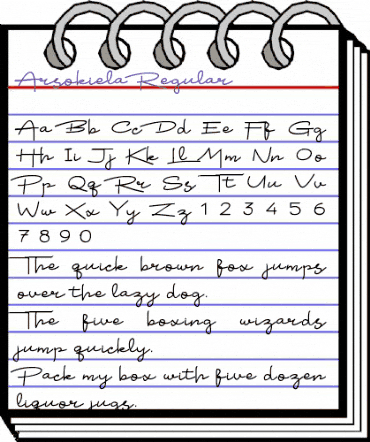 Arzokiela Regular
Aa Bb Cc Dd Ee Ff Gg
Hh Ii Jj Kk Ll Mm Nn Oo
Pp Qq Rr Ss Tt Uu Vv
Ww Xx Yy Zz 1 2 3 4 5 6
7 8 9 0
The quick brown fox jumps
over the lazy dog.
The five boxing wizards
jump quickly.
Pack my box with five dozen
liquor jugs.